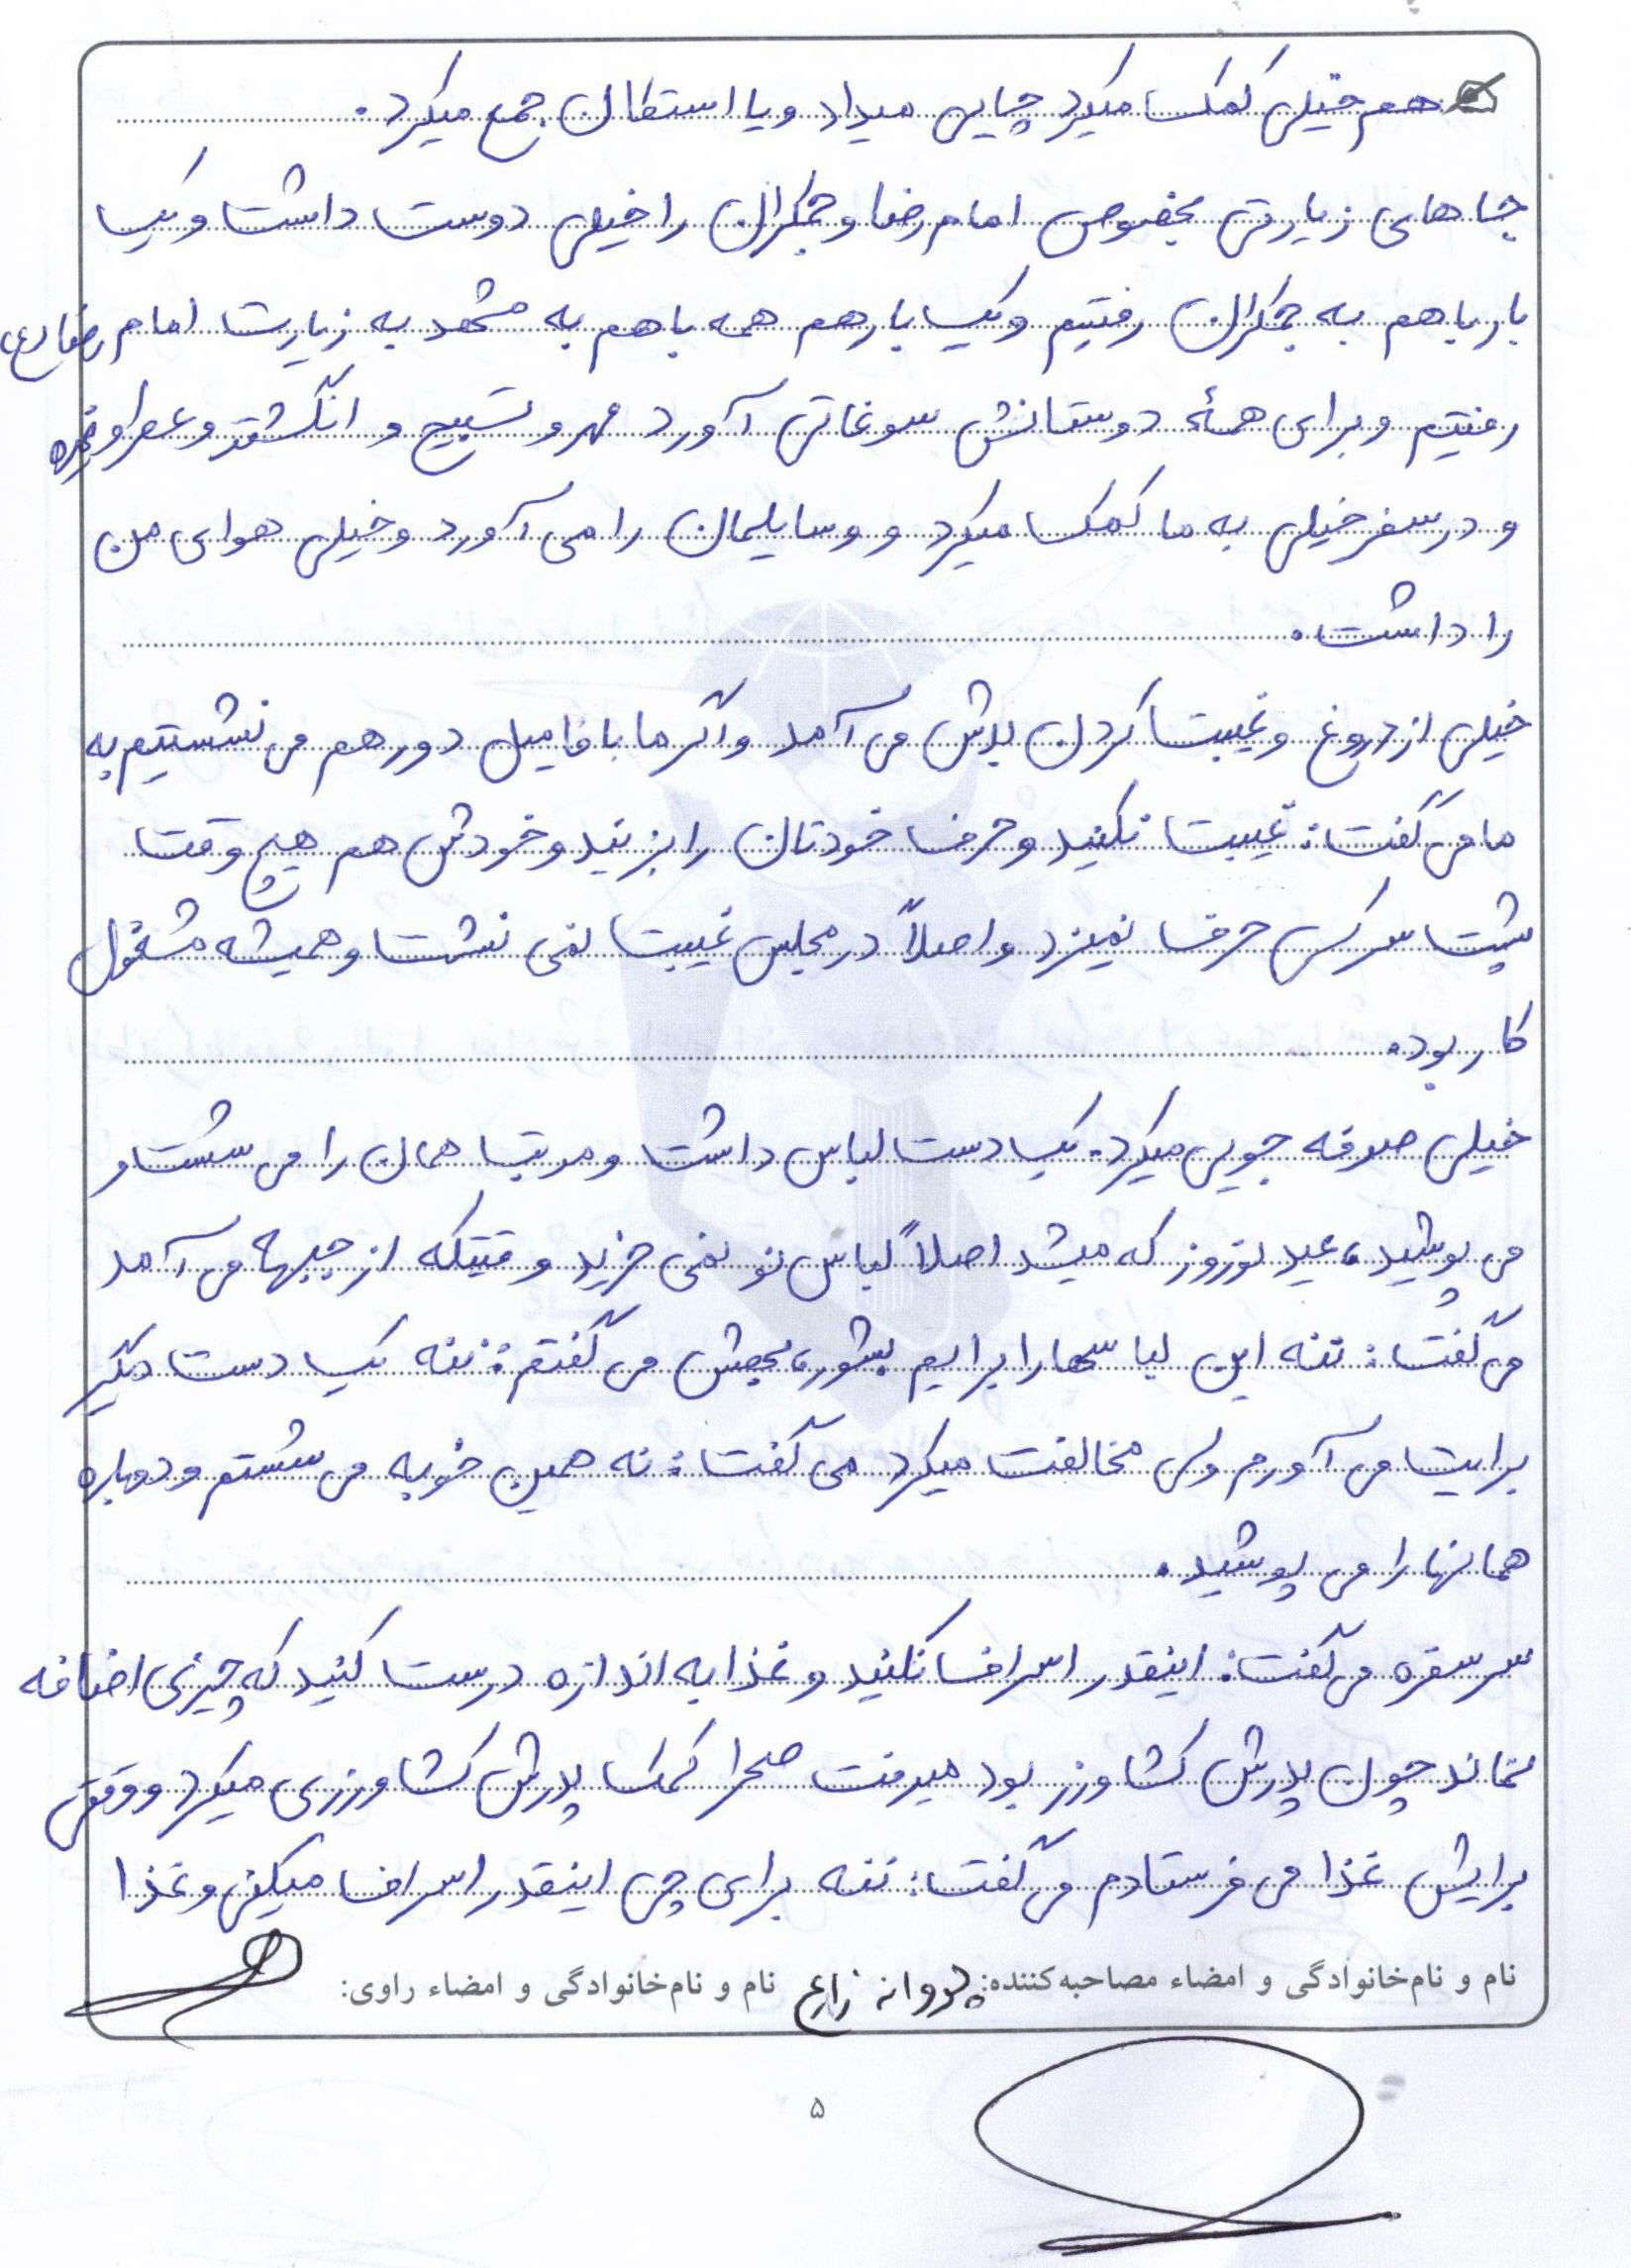 هم خیلی کمک میکرد چایی میداد و یا استکان جمع میکرد.
جاهای زیارتی بخصوص امام رضا و جمکران را خیلی دوست داشت و یک
بار باهم به جمکران رفتیم و یک بار هم همه باهم به مشهد به زیارت امام رضا (ع)
رفتیم و برای همهٔ دوستانش سوغاتی آورد مهر و تسبیح و انگشتر و عطر و غیره
و در سفر خیلی به ما کمک میکرد و وسایلمان را می آورد و خیلی هوای من
را داشت.
خیلی از دروغ و غیبت کردن بدش می آمد و اگر ما با فامیل دور هم می نشستیم به
ما می گفت: غیبت نکنید و حرف خودتان را بزنید و خودش هم هیچ وقت
پشت سر کسی حرف نمیزد و اصلاً در مجلس غیبت نمی نشست و همیشه مشغول
کار بود.
خیلی صرفه جویی میکرد. یک دست لباس داشت و مرتب همان را می شست و
می پوشید، عید نوروز که میشد اصلاً لباس نو نمی خرید وقتیکه از جبهه می آمد
می گفت: ننه این لباسها را برایم بشور، بهش می گفتم: ننه یک دست دیگر
برایت می آورم ولی مخالفت میکرد می گفت: نه همین خوبه می شستم و دوباره
همانها را می پوشید.
سر سفره می گفت: اینقدر اسراف نکنید و غذا به اندازه درست کنید که چیزی اضافه
نماند چون پدرش کشاورز بود میرفت صحرا کمک پدرش کشاورزی میکرد و وقتی
برایش غذا می فرستادم می گفت: ننه برای چی اینقدر اسراف میکنی و غذا
نام و نام‌خانوادگی و امضاء مصاحبه‌کننده: پروانه زارع نام و نام‌خانوادگی و امضاء راوی:
۵